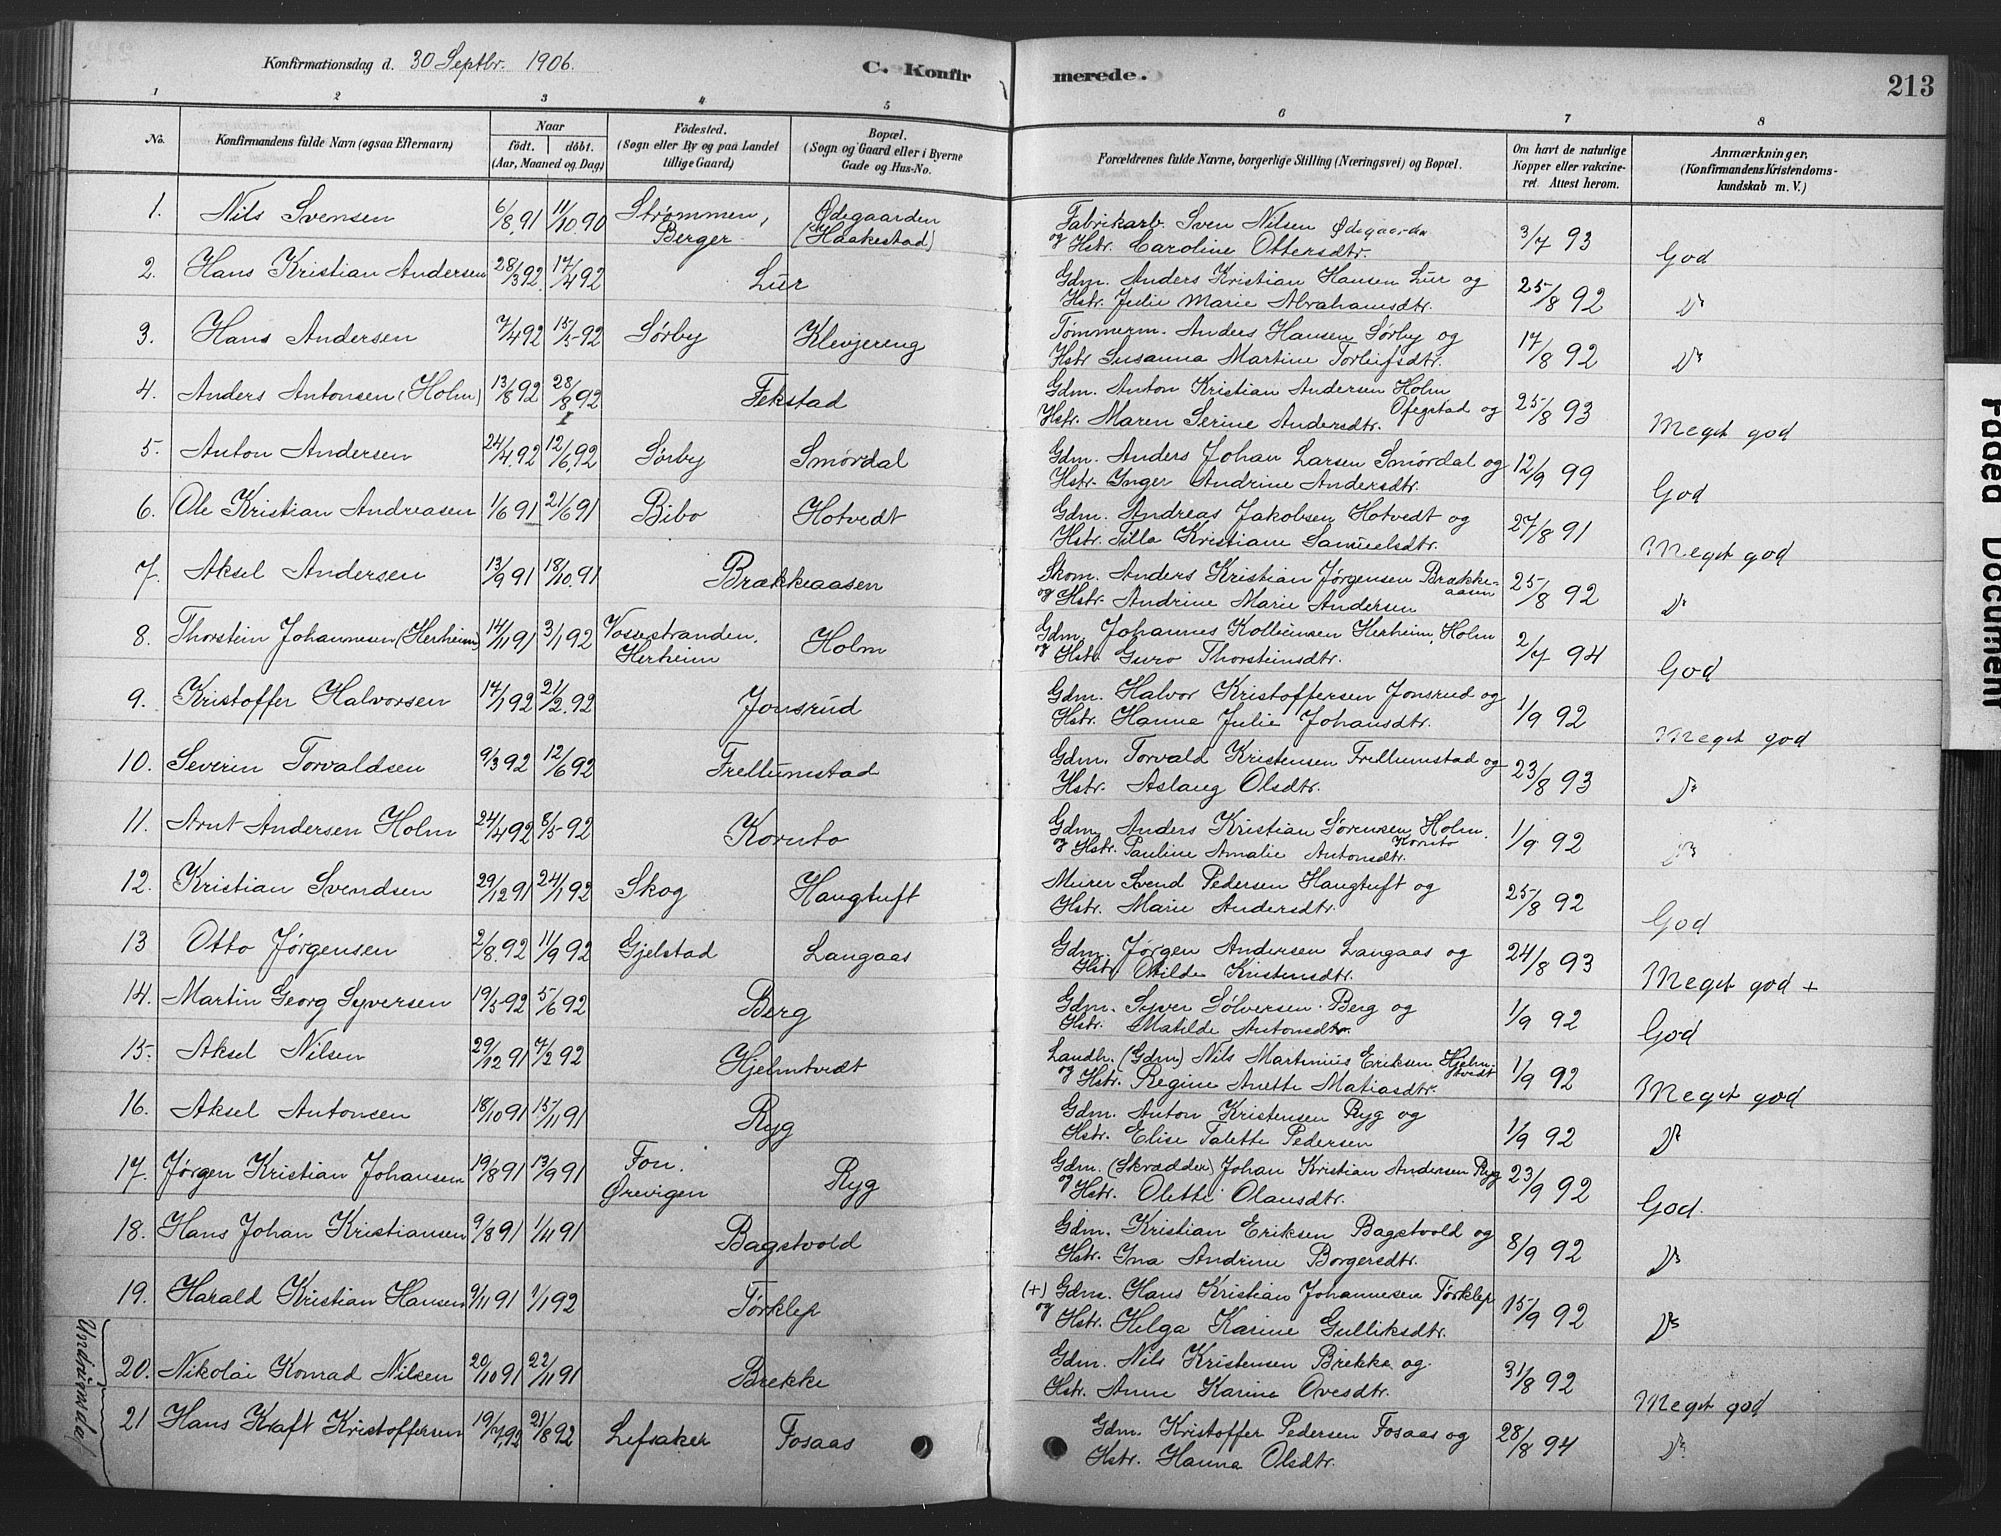 Konfirmationsdag d. 30 Septbr. 1906.
C. Konfirmerede.
213
1 2 3 4 5 6 7 8
No.
Konfirmandens fulde Navn (ogsaa Efternavn)
Naar
födt. döbt.
(Aar, Maaned og Dag)
Födested.
(Sogn eller By og paa Landet
tillige Gaard)
Bopæl.
(Sogn og Gaard eller i Byerne
Gade og Hus-No.
Forældrenes fulde Navne, borgerlige Stilling (Næringsvei) og Bopæl.
Om havt de naturlige
Kopper eller vakcine-
ret. Attest herom.
Anmærkninger,
(Konfirmandens Kristendoms-
kundskab m. V.)
1. Nils Svensen 6/8 91 11/10 90 Strømmen, Berger. Ødegaarden (Haakestad)
Fabrikarb. Sven Nilsen Ødegaarden
og Hstr. Caroline Ottersdtr. 3/7 93 God
2. Hans Kristian Andersen 28/3 92 17/4 92 Lur
Gdm. Anders Kristian Hansen Lur og
Hstr. Julie Marie Abrahamsdtr. 25/8 92 Do
3. Hans Andersen 7/4 92 15/5 92 Sørby Klevjereng
Tømmerm. Anders Hansen Sørby og
Hstr Susanna Martine Torleifsdtr. 17/8 92 Do
4. Anders Antonsen (Holm) 13/8 92 28/8 92 Fekstad
Gdm. Anton Kristian Andersen Holm
Hstr. Maren Serine Andersdtr. Ofegstad og 25/8 93 Meget god
5. Anton Andersen 24/4 92 12/6 92 Sørby Smørdal
Gdm. Anders Johan Larsen Smørdal og
Hstr. Inger Andrine Andersdtr. 12/9 99 God
6. Ole Kristian Andreasen 1/6 91 21/6 91 Bibo Hotvedt
Gdm. Andreas Jakobsen Hotvedt og
Hstr. Tilla Kristiane Samuelsdtr. 27/8 91 Meget god
7. Aksel Andersen 13/9 91 18/10 91 Brækkeaasen
Skom. Anders Kristian Jørgensen Brække-
aasen
og Hstr. Andrine Marie Andersen 25/8 92 Do
8. Thorstein Johannesen (Herheim) 14/11 91 3/1 92 Vossestranden, Herheim Holm
Gdm. Johannes Kolbensen Herheim, Holm
og Hstr. Guro Thorsteinsdtr. 2/7 94 God
9. Kristoffer Halvorsen 17/1 92 21/2 92 Jonsrud
Gdm. Halvor Kristoffersen Jonsrud og
Hstr. Hanna Julie Johansdtr. 1/9 92 Meget god
10. Severin Torvaldsen 9/3 92 12/6 92 Frellumstad
Gdm. Torvald Kristensen Frellumstad og
Hstr. Aslaug Olsdtr. 23/8 93 Do
11. Arnt Andersen Holm 24/4 92 8/5 92 Kornto
Gdm. Anders Kristian Sørensen Holm,
Kornto
og Hstr. Pauline Amalie Antonsdtr. 1/9 92 Do
12. Kristian Svendsen 29/12 91 24/1 92 Skog Haugtuft
Murer Svend Pedersen Haugtuft og
Hstr. Marie Andersdtr. 25/8 92 God
13 Otto Jørgensen 2/8 92 11/9 92 Gjelstad Langaas
Gdm. Jørgen Andersen Langaas og
Hstr. Otilde Kristensdtr. 24/8 93 Meget god +
14. Martin Georg Syversen 19/5 92 5/6 92 Berg
Gdm. Syver Sølversen Berg og
Hstr. Matilde Antonsdtr. 1/9 92 God
15. Aksel Nilsen 29/12 91 7/2 92 Hjelmtvedt
Landh. (Gdm) Nils Martinius Eriksen Hjelm-
tvedt
og Hstr. Regine Anette Matiasdtr. 1/9 92 Meget god
16. Aksel Antonsen 18/10 91 15/11 91 Ryg
Gdm. Anton Kristensen Ryg og
Hstr. Elise Talette Pedersen 1/9 92 Do
17. Jørgen Kristian Johansen 19/8 91 13/9 91 Fon. Ørevigen Ryg
Gdm. (Skrædder) Johan Kristian Andersen Ryg
og Hstr. Olette Olausdtr. 23/9 92 God.
18. Hans Johan Kristiansen 9/8 91 1/11 91 Bagstvold
Gdm. Kristian Eriksen Bagstvold og
Hstr. Ina Andrine Borgersdtr. 8/9 92 Do
19. Harald Kristian Hansen 9/11 91 1/1 92 Tørklep
(+) Gdm. Hans Kristian Johannesen Tørklep
og Hstr. Helga Karine Gulliksdtr. 15/9 92 Do
Undrumsdal
20. Nikolai Konrad Nilsen 20/10 91 22/11 91 Brekke
Gdm. Nils Kristensen Brekke og
Hstr. Anne Karine Ovesdtr. 31/8 92 Meget god
21 Hans Kraft Kristoffersen 19/7 92 21/8 92 Lefsaker Fosaas
Gdm. Kristoffer Pedersen Fosaas og
Hstr. Hanna Olsdtr. 28/8 94 Do
Faded Document